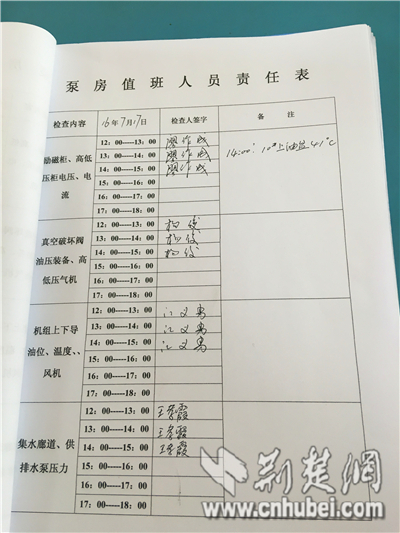 泵房值班人员责任表
检查内容 16年7月17日 检查人签字 备注
励磁柜、高低压柜电压、电流
12:00-----13:00
13:00-----14:00
14:00-----15:00
15:00-----16:00
16:00-----17:00
17:00-----18:00
14:00: 10#上油盆41°C
真空破坏阀油压装备、高低压气机
12:00-----13:00
13:00-----14:00
14:00-----15:00
15:00-----16:00
16:00-----17:00
17:00-----18:00
机组上下导油位、温度、、风机
12:00-----13:00 江义勇
13:00-----14:00 江义勇
14:00-----15:00 江义勇
15:00-----16:00
16:00-----17:00
17:00-----18:00
集水廊道、供排水泵压力
12:00-----13:00
13:00-----14:00
14:00-----15:00
15:00-----16:00
16:00-----17:00
17:00-----18:00
荆楚网
www.cnhubei.com